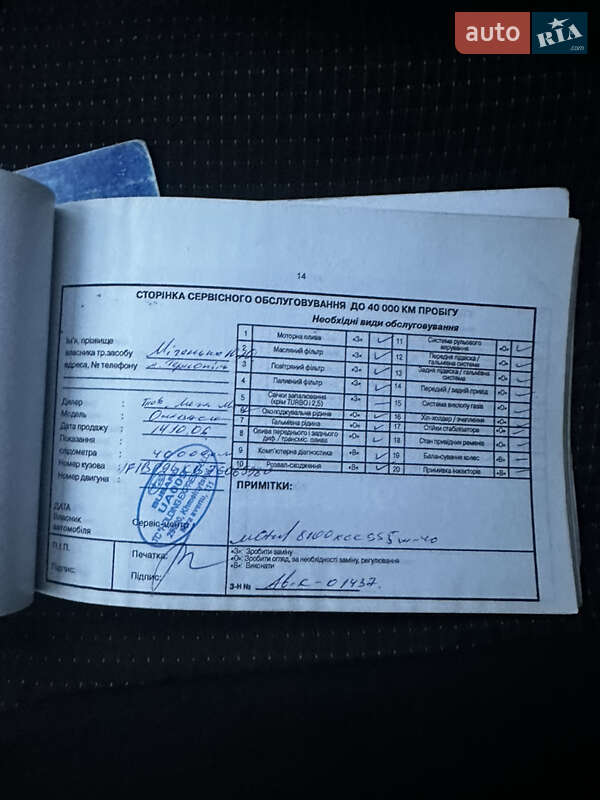 auto RIA .com
14
СТОРІНКА СЕРВІСНОГО ОБСЛУГОВУВАННЯ ДО 40 000 КМ ПРОБІГУ
Необхідні види обслуговування
Ім'я, прізвище
власника тр.засобу
адреса, № телефону
1 Моторна олива «З» 11 Система рульового керування «О»
2 Масляний фільтр «З» 12 Передня підвіска / гальмівна система «О»
3 Повітряний фільтр «З» 13 Задня підвіска / гальмівна система «О»
4 Паливний фільтр «З» 14 Передній / задній привід «О»
5 Свічки запалювання (крім TURBO і 2,5) «З» 15 Система випуску газів «О»
6 Охолоджувальна рідина «О» 16 Хіл-холдер / зчеплення «О»
7 Гальмівна рідина «О» 17 Стійки стабілізатора «О»
8 Олива переднього і заднього диф. / трансміс. олива 18 Стан привідних ременів «О»
9 Комп'ютерна діагностика «В» 19 Балансування колес «В»
10 Розвал-сходження «В» 20 Промивка інжекторів «В»
Дилер:
Модель:
Дата продажу: 14.10.06
Показання
спідометра 40000
Номер кузова:
Номер двигуна:
ПРИМІТКИ:
8100 5w-40
ДАТА
Власник
автомобіля
Сервіс-центр
П.І.П.
Підпис:
Печатка:
Підпис:
«З» Зробити заміну
«О» Зробити огляд, за необхідності заміну, регулювання
«В» Виконати
З-Н № 01437